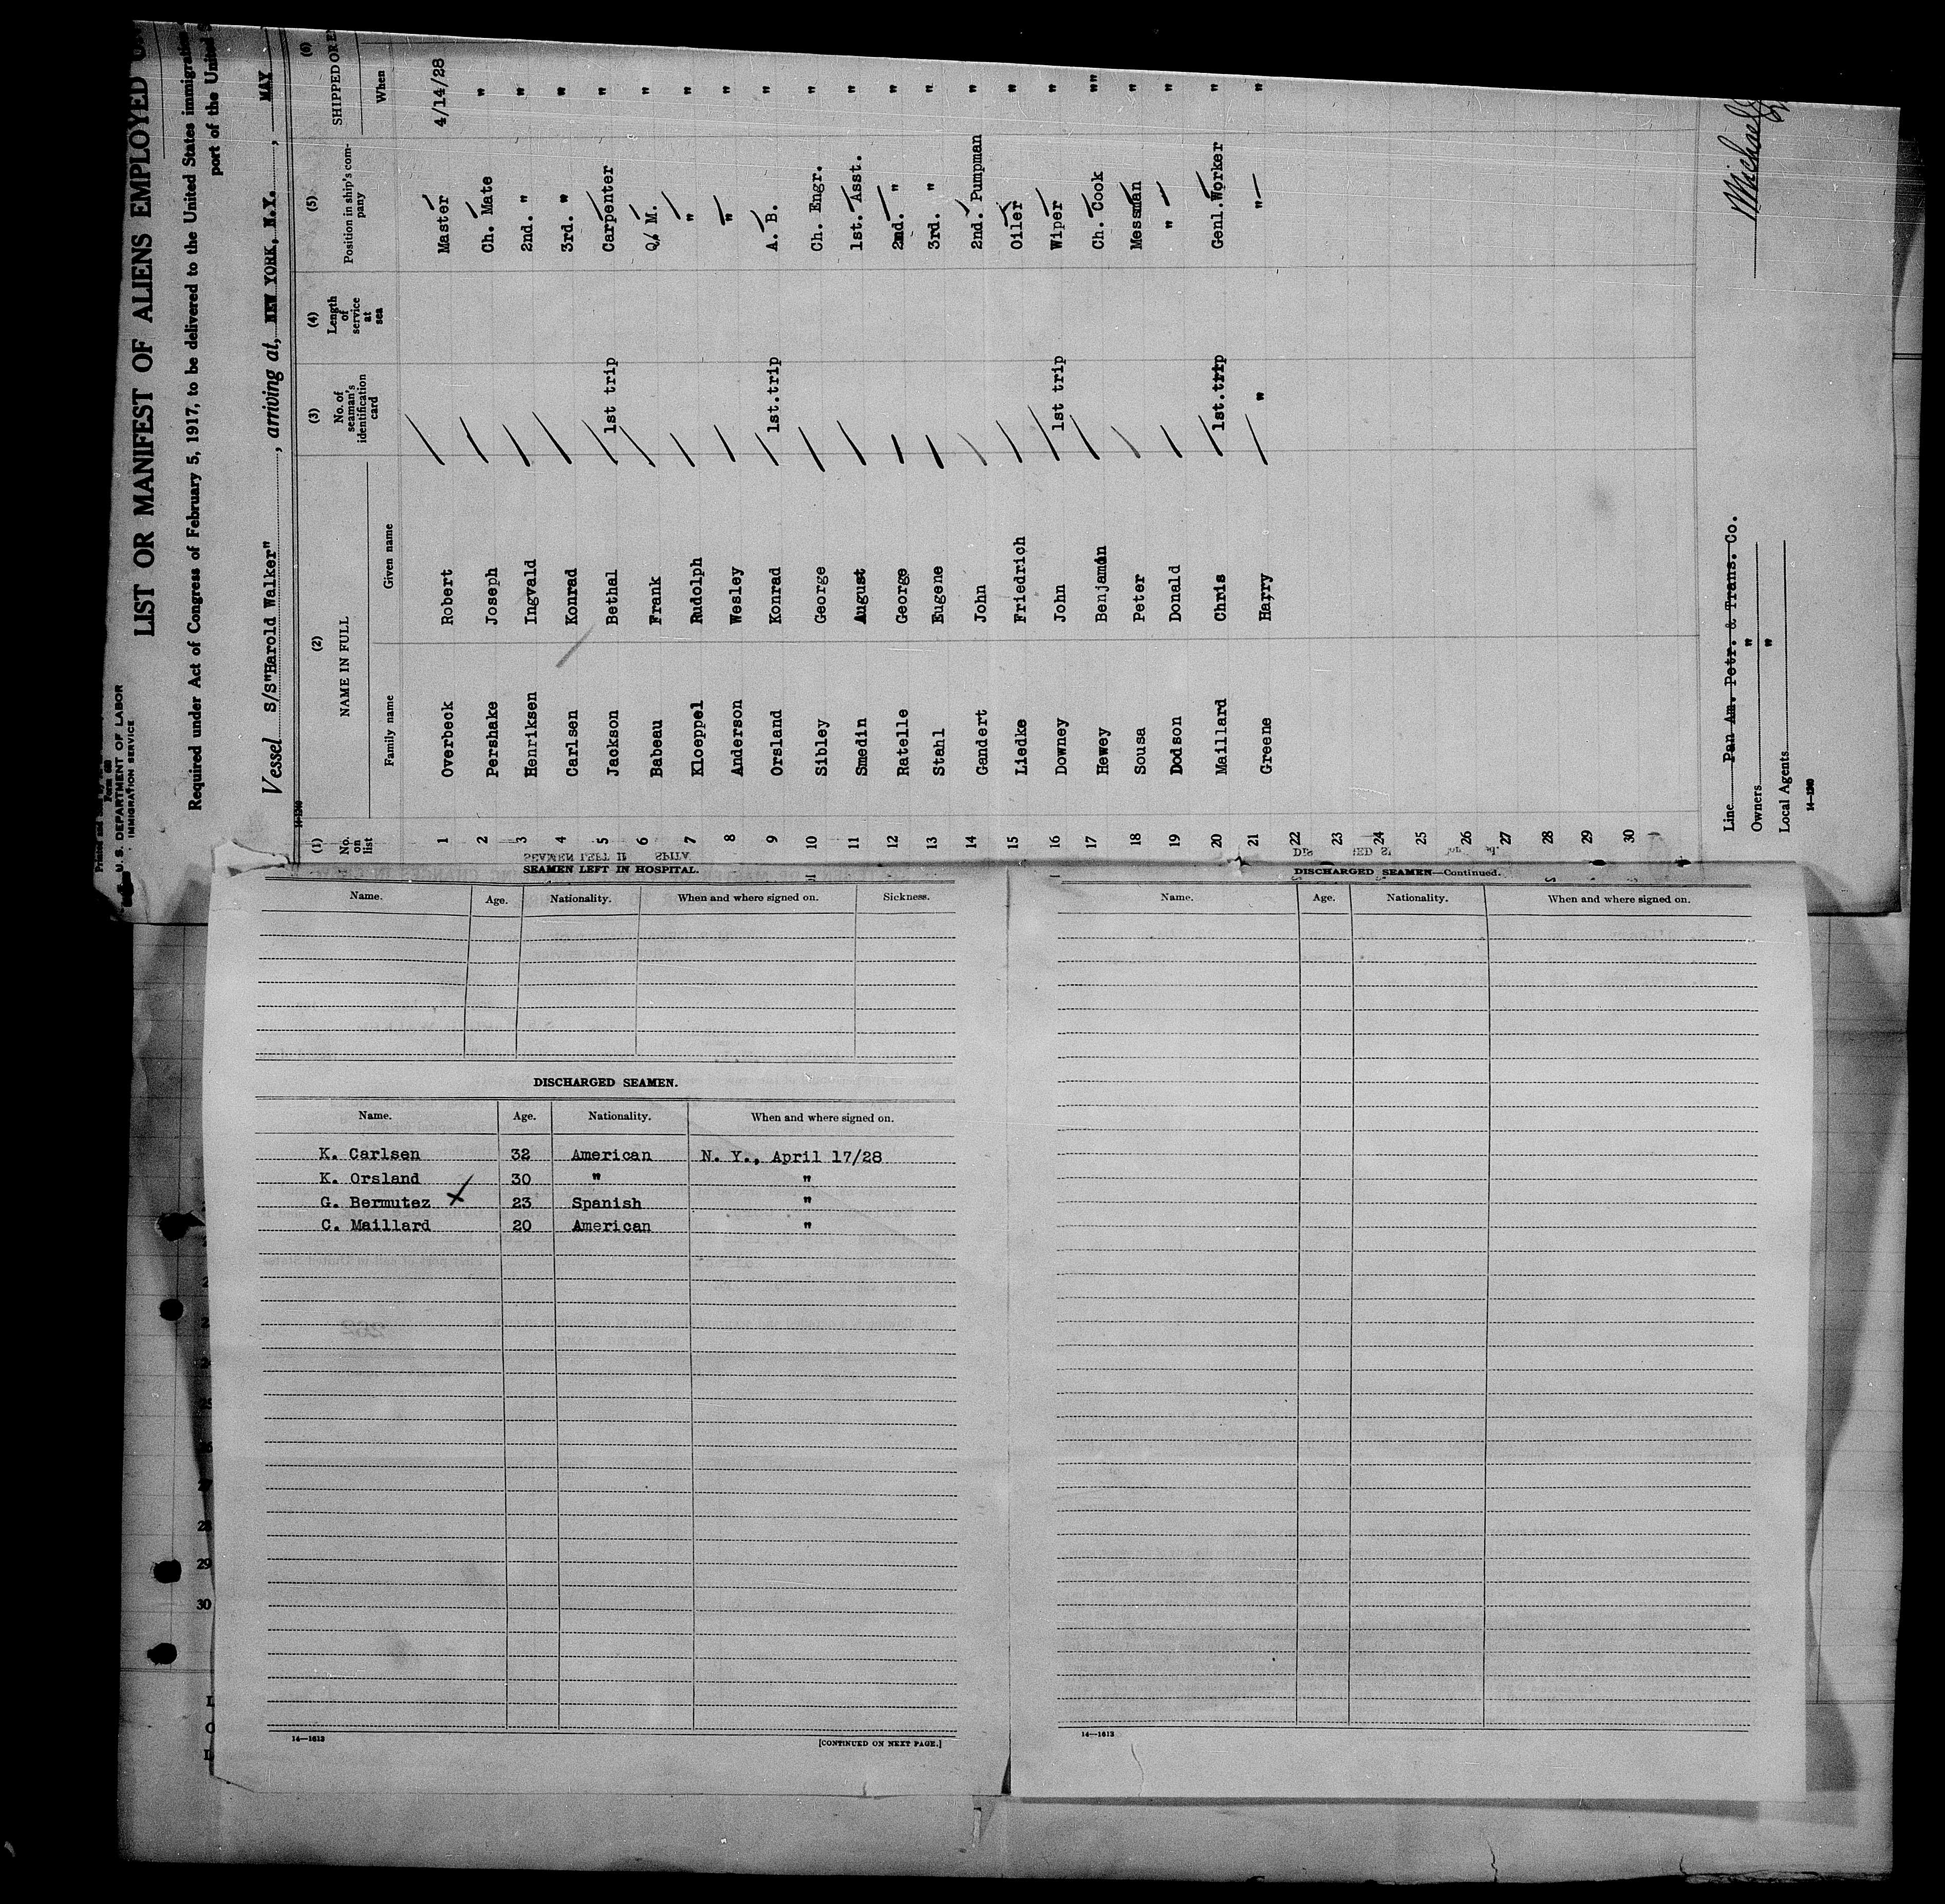 Form 680
U. S. DEPARTMENT OF LABOR
IMMIGRATION SERVICE
LIST OR MANIFEST OF ALIENS EMPLOYED
Required under Act of Congress of February 5, 1917, to be delivered to the United States immigration
port of the United
Vessel S/S"Harold Walker", arriving at, NEW YORK, N.Y., MAY
14-1240
(1) (2) (3) (4) (5) (6)
No. on list NAME IN FULL No. of seaman's identification card Length of service at sea Position in ship's company SHIPPED OR
Family name Given name When
1 Overbeck Robert Master 4/14/28
2 Pershake Joseph Ch. Mate "
3 Henriksen Ingvald 2nd. " "
4 Carlsen Konrad 3rd. " "
5 Jackson Bethal 1st trip Carpenter "
6 Babeau Frank Q. M. "
7 Kloeppel Rudolph " "
8 Anderson Wesley " "
9 Orsland Konrad 1st.trip A. B. "
10 Sibley George Ch. Engr. "
11 Smedin August 1st. Asst. "
12 Ratelle George 2nd. " "
13 Stahl Eugene 3rd. " "
14 Gandert John 2nd. Pumpman "
15 Liedke Friedrich Oiler "
16 Downey John 1st trip Wiper "
17 Hewey Benjamin Ch. Cook ""
18 Sousa Peter Messman "
19 Dodson Donald " "
20 Maillard Chris 1st.trip Genl.Worker "
21 Greene Harry " " "
22
23
24
25
26
27
28
29
30
Line Pan Am. Petr. & Trans. Co.
Owners "
Local Agents "
14-1240
SEAMEN LEFT IN HOSPITAL.
Name. Age. Nationality. When and where signed on. Sickness.
DISCHARGED SEAMEN.
Name. Age. Nationality. When and where signed on.
K. Carlsen 32 American N. Y., April 17/28
K. Orsland 30 " "
G. Bermutez 23 Spanish "
C. Maillard 20 American "
14—1613
[CONTINUED ON NEXT PAGE.]
DISCHARGED SEAMEN—Continued.
Name. Age. Nationality. When and where signed on.
14—1613
28
29
30